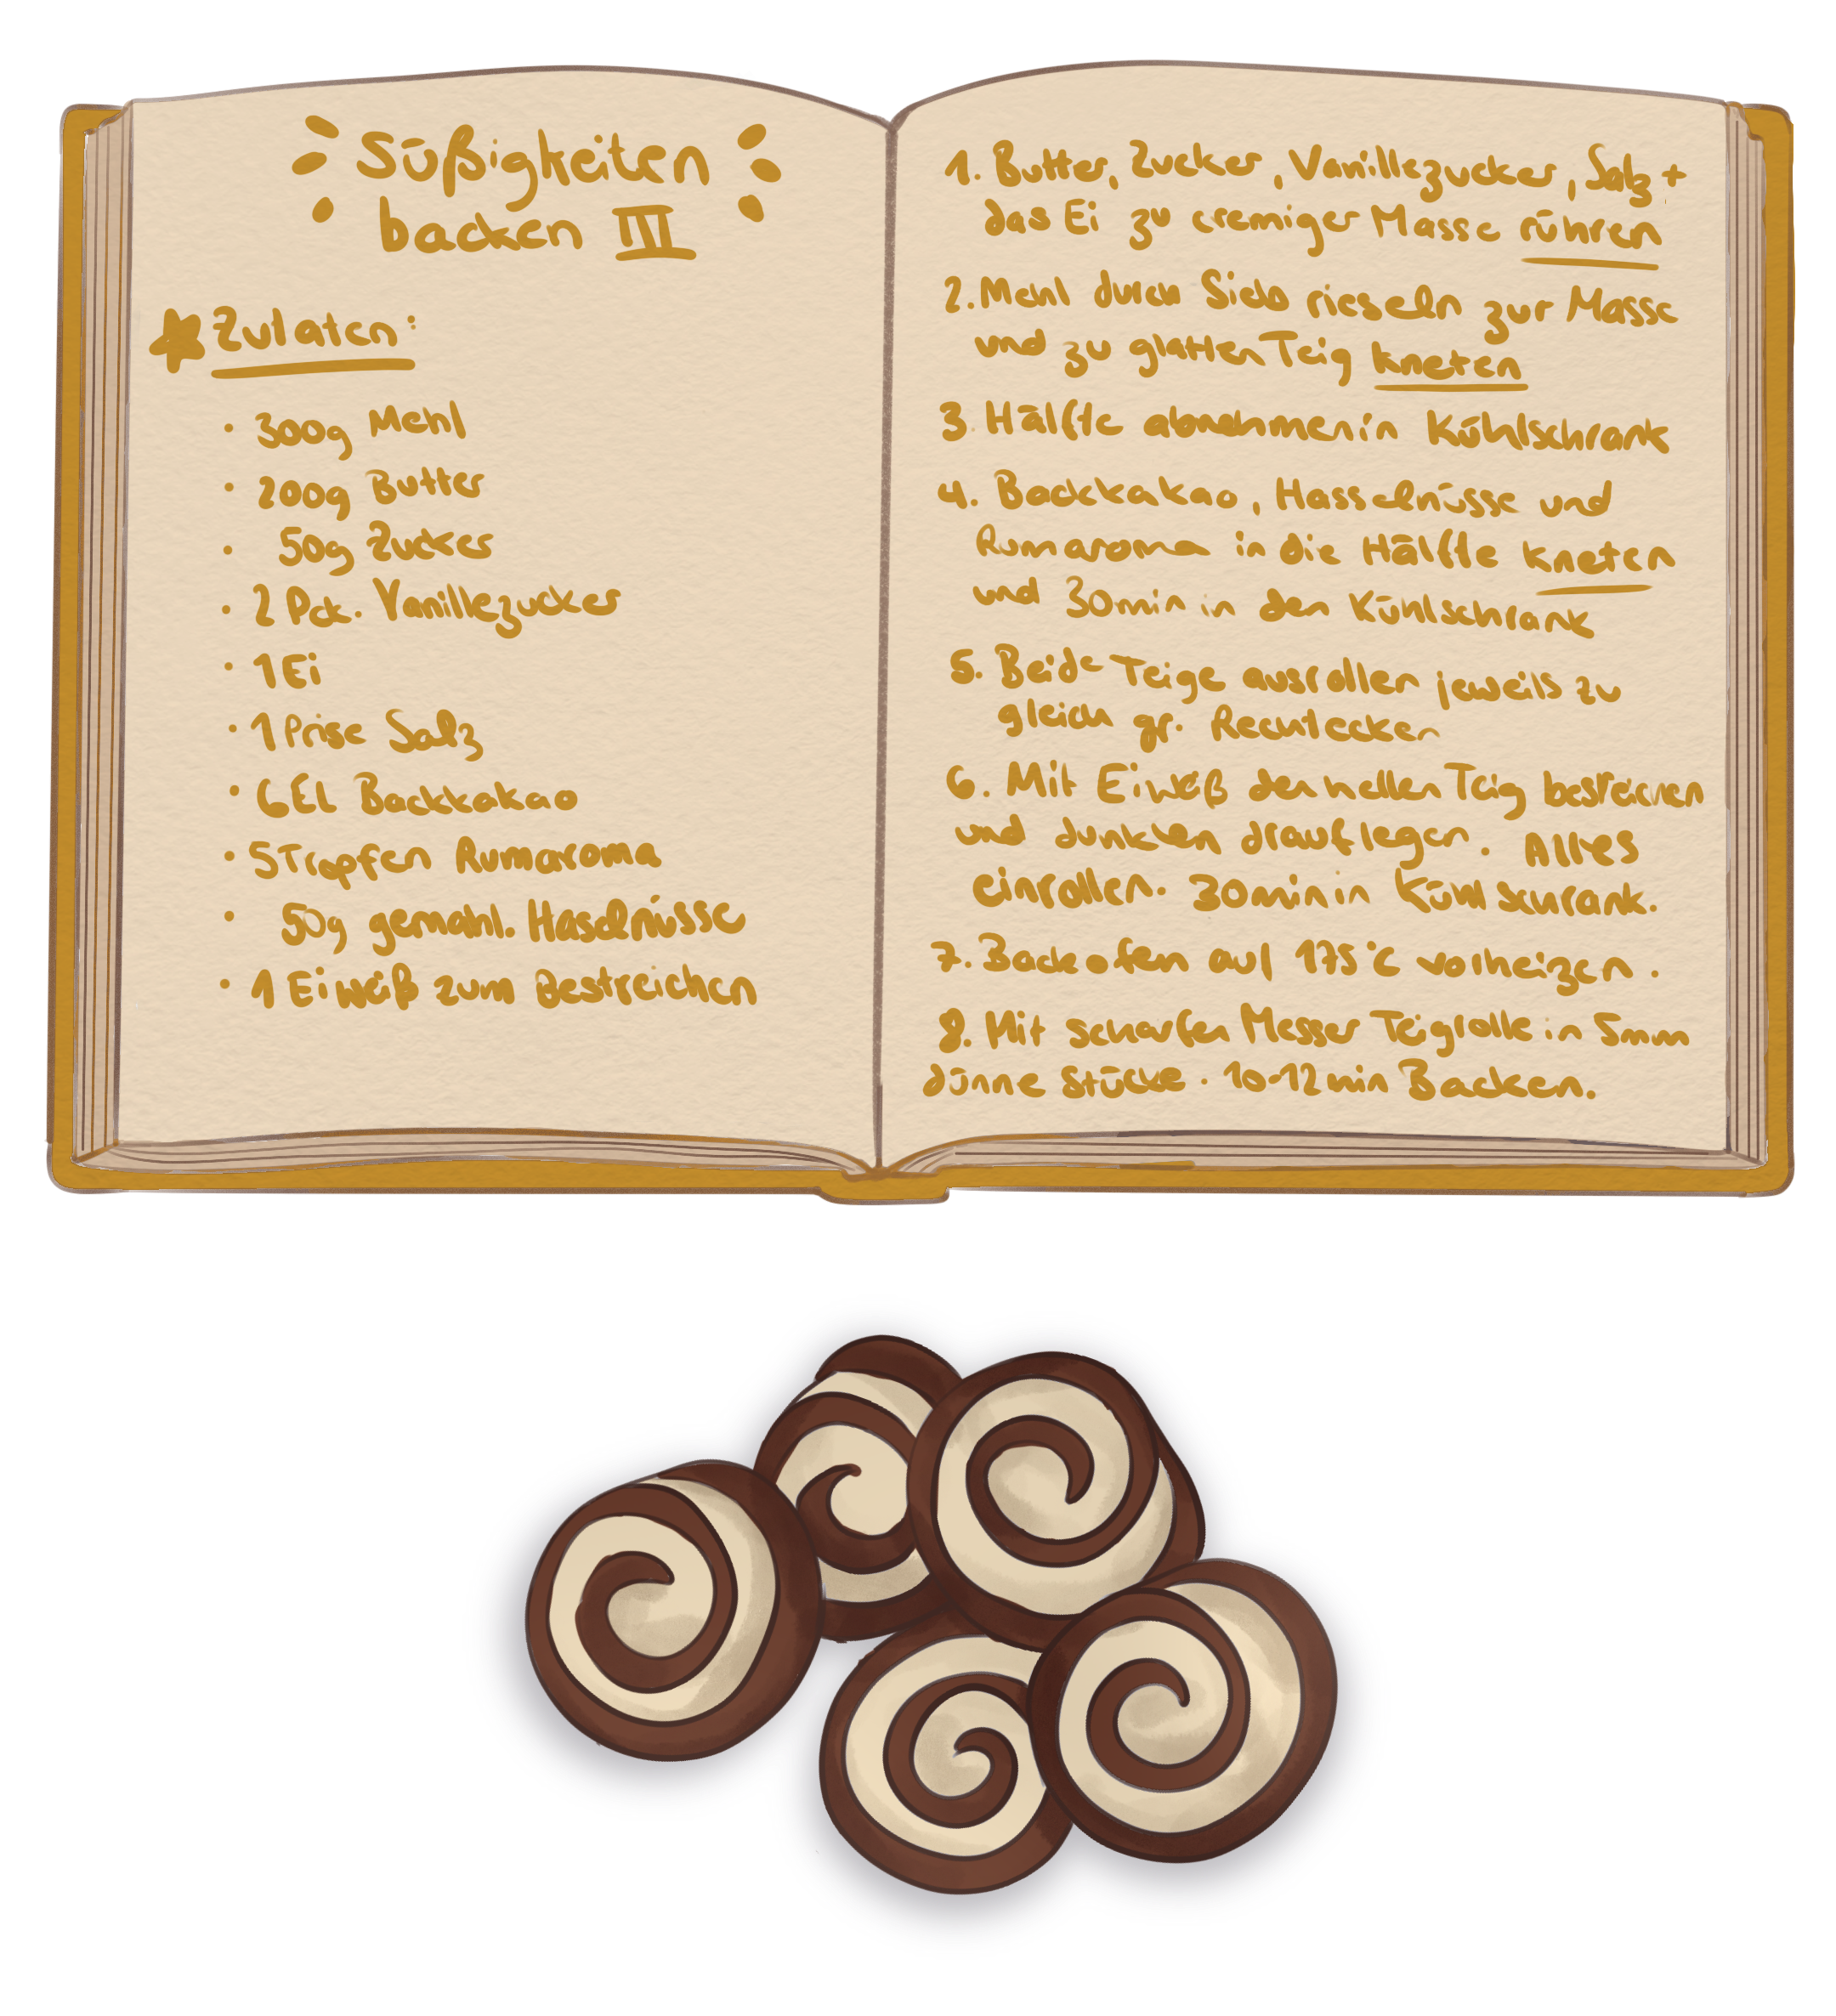 Süßigkeiten
backen III
Zutaten:
· 300g Mehl
· 200g Butter
· 50g Zucker
· 2 Pck. Vanillezucker
· 1 Ei
· 1 Prise Salz
· 6 EL Backkakao
· 5 Tropfen Rumaroma
· 50g gemahl. Haselnüsse
· 1 Eiweiß zum Bestreichen
1. Butter, Zucker, Vanillezucker, Salz +
das Ei zu cremiger Masse rühren
2. Mehl durch Sieb rieseln zur Masse
und zu glatten Teig kneten
3. Hälfte abnehmen in Kühlschrank
4. Backkakao, Hasselnüsse und
Rumaroma in die Hälfte kneten
und 30min in den Kühlschrank
5. Beide Teige ausrollen jeweils zu
gleich gr. Rechtecken
6. Mit Eiweiß den hellen Teig bestreichen
und dunklen drauflegen. Alles
einrollen. 30min in Kühlschrank.
7. Backofen auf 175°C vorheizen.
8. Mit scharfen Messer Teigrolle in 5mm
dünne Stücke. 10-12min Backen.